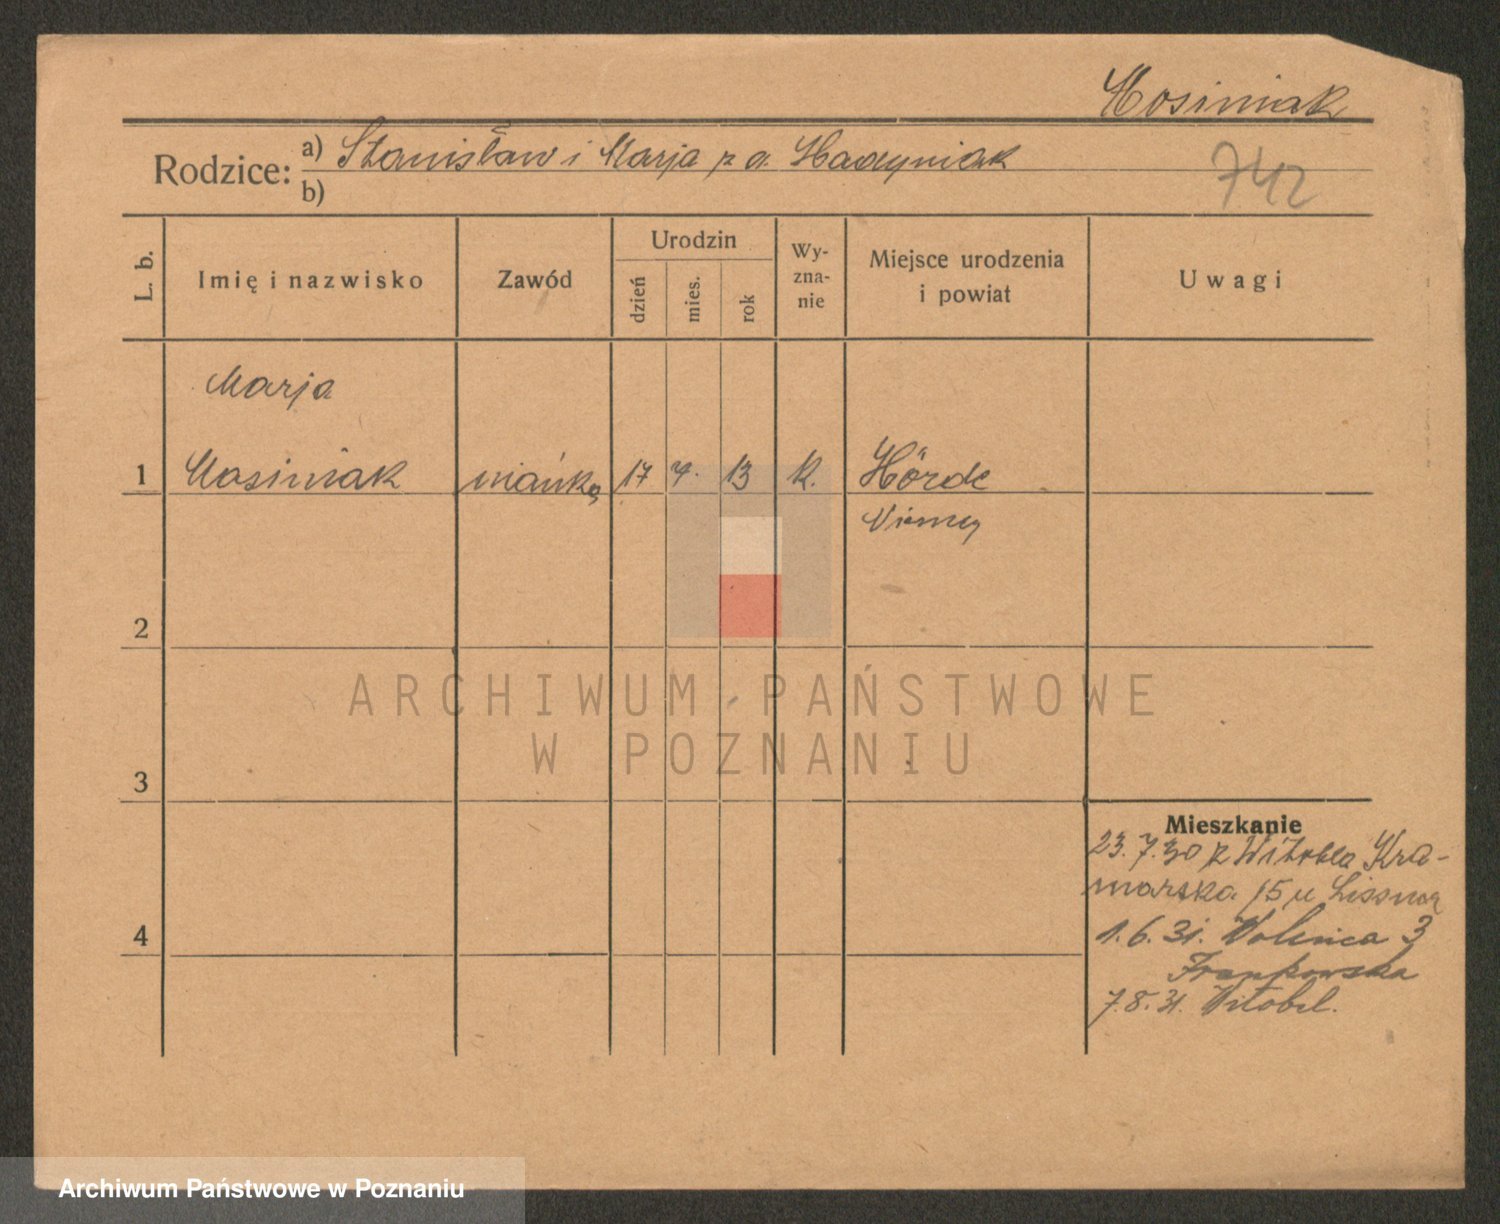 Mosiniak
Rodzice: a) Stanisław i Marja z d.
b)
742
L. b.
Imię i nazwisko
Zawód
Urodzin
dzień
mies.
rok
Wy-
zna-
nie
Miejsce urodzenia
i powiat
Uwagi
Marja
1 Mosiniak niańka 17 7. 13 k. Hörde
Niemcy
2
ARCHIWUM PAŃSTWOWE
W POZNANIU
3
Mieszkanie
23.7.30 z Witobla Kra-
marska 15 u
4
1.6.31. Wolnica 3
Frankowska
7.8.31. Witobel.
Archiwum Państwowe w Poznaniu